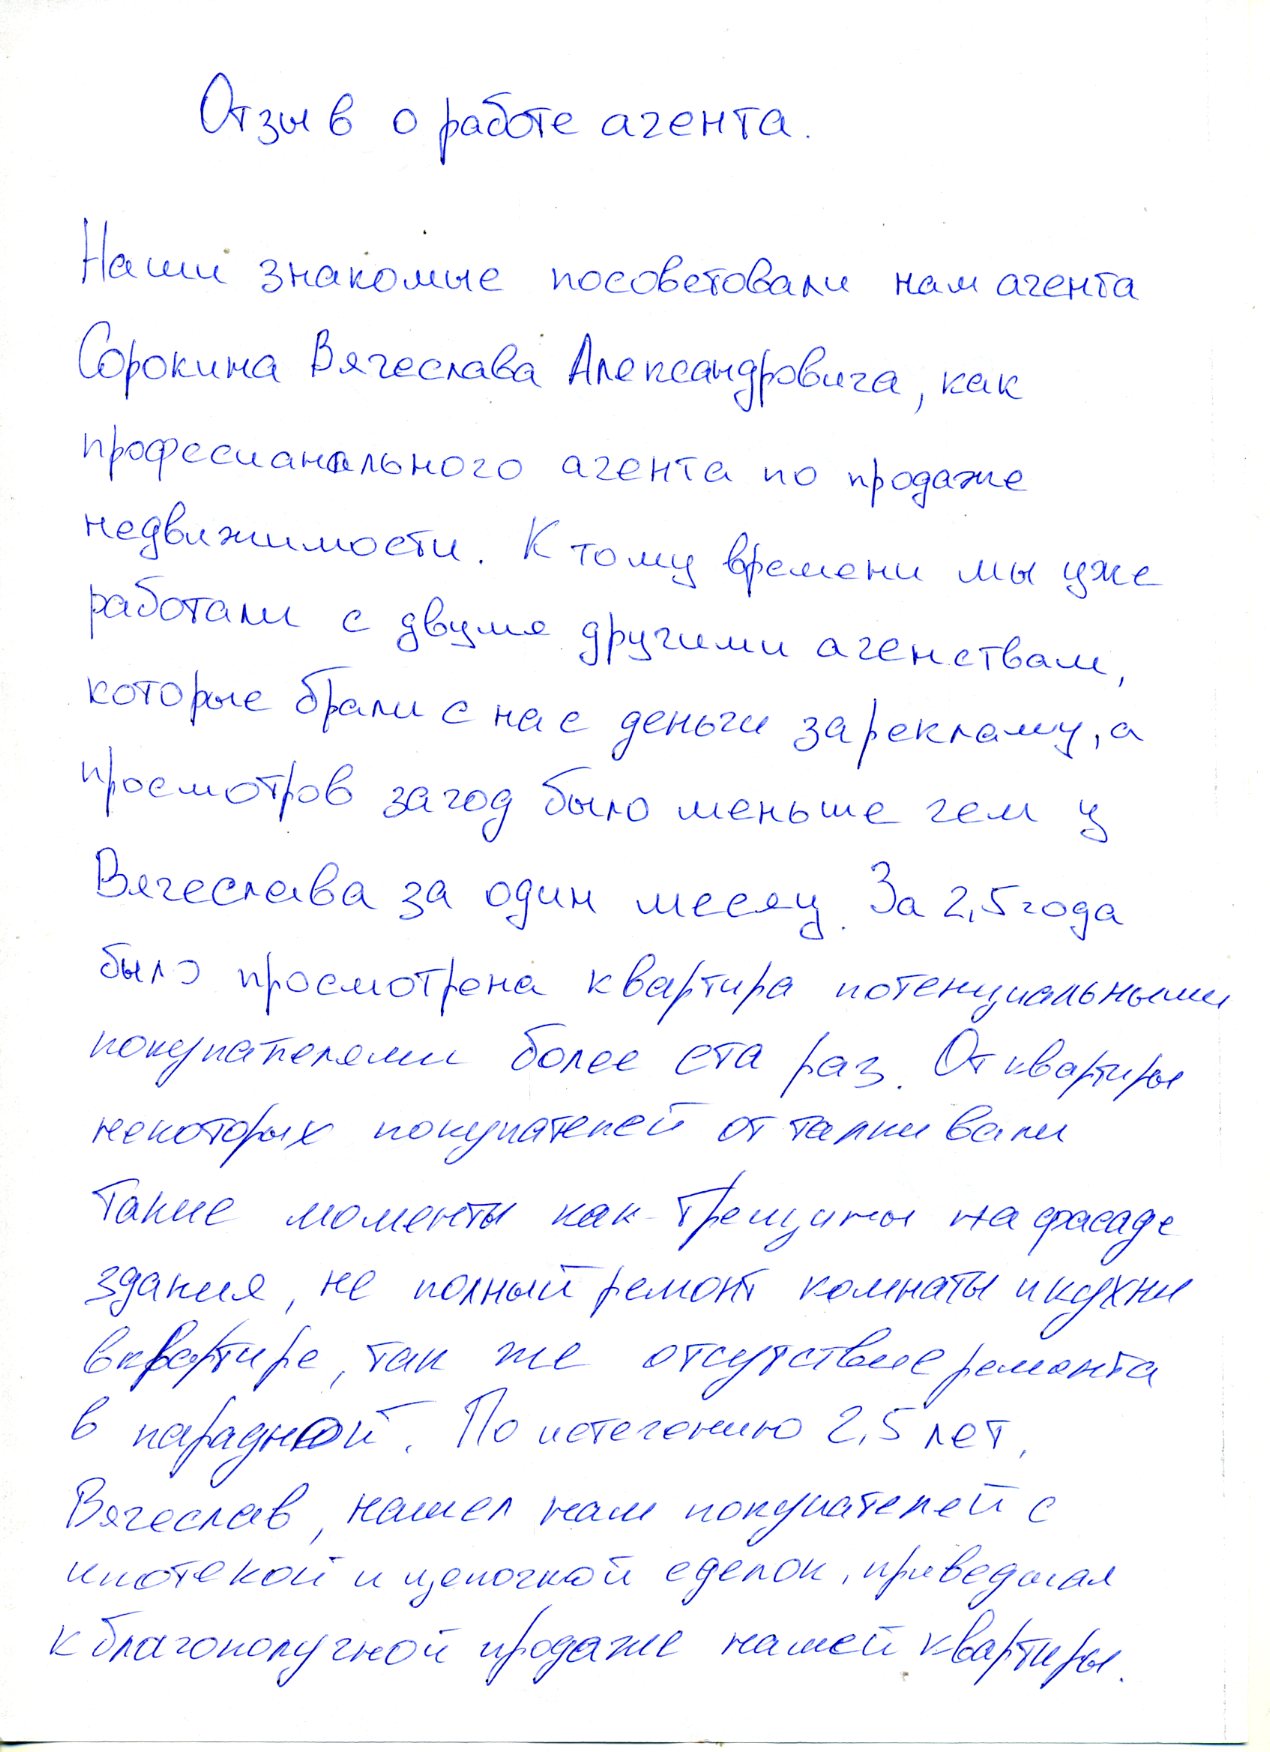 Отзыв о работе агента.
Наши знакомые посоветовали нам агента
Сорокина Вячеслава Александровича, как
професианального агента по продаже
недвижимости. К тому времени мы уже
работали с двумя другими агенствам,
которые брали с нас деньги за рекламу, а
просмотров за год было меньше чем у
Вячеслава за один месяц. За 2,5 года
было просмотрена квартира потенциальными
покупателями более ста раз. От квартиры
некоторых покупателей отталкивали
такие моменты как трещины на фасаде
здания, не полный ремонт комнаты и кухни
в квартире, так же отсутствие ремонта
в парадной. По истечению 2,5 лет,
Вячеслав, нашел нам покупателей с
ипотекой и цепочкой сделок, приведшая
к благополучной продаже нашей квартиры.